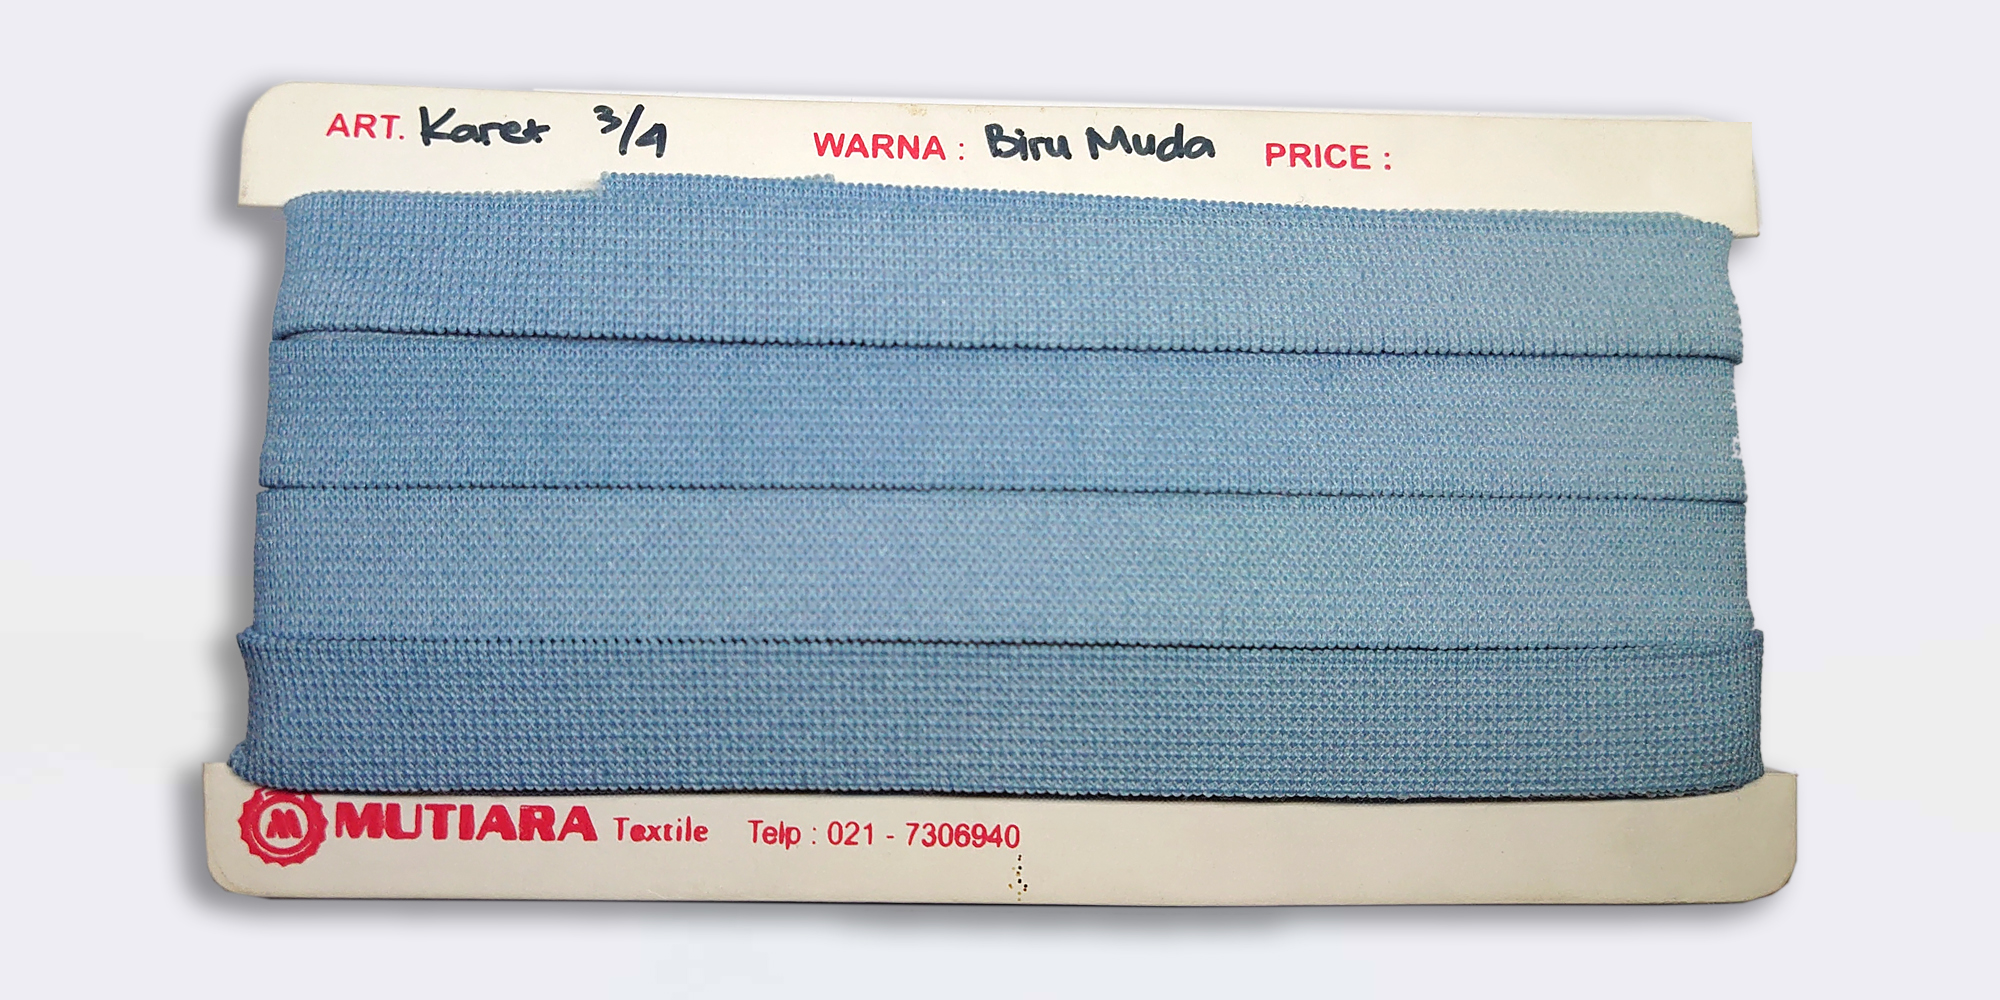 ART. Karet 3/4 WARNA : Biru Muda PRICE :
M MUTIARA Textile Telp : 021 - 7306940